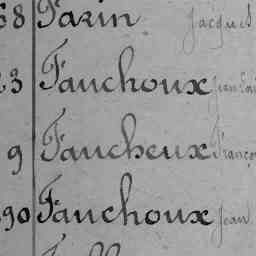 68 Farin Jacques
23 Fauchoux Jean Loui
9 Faucheux Françoi
290 Fauchoux Jean